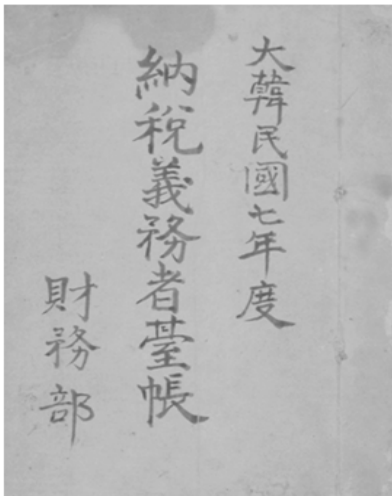 大韓民國七年度
納稅義務者臺帳
財務部